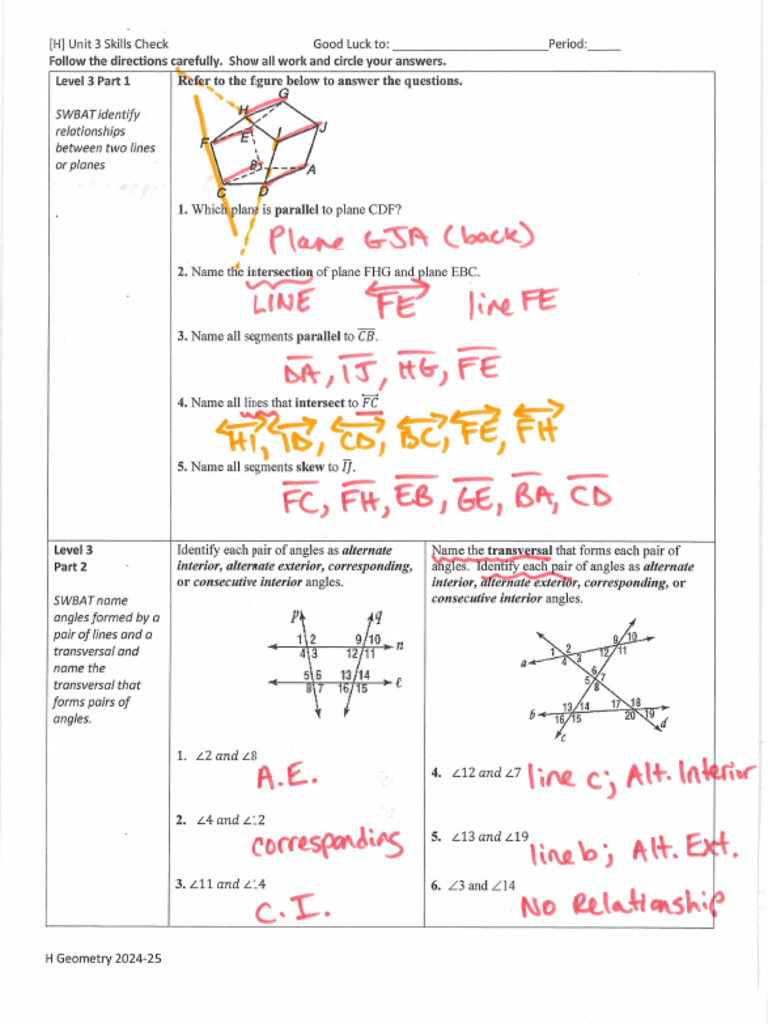 [H] Unit 3 Skills Check Good Luck to: ____________________ Period:_____
Follow the directions carefully. Show all work and circle your answers.
Level 3 Part 1
SWBAT identify
relationships
between two lines
or planes
Refer to the figure below to answer the questions.
G
H
J
I
E
F
B
A
C
D
1. Which plane is parallel to plane CDF?
Plane GJA (back)
2. Name the intersection of plane FHG and plane EBC.
LINE FE line FE
3. Name all segments parallel to CB.
DA, IJ, HG, FE
4. Name all lines that intersect to FC
HI, ID, CD, BC, FE, FH
5. Name all segments skew to IJ.
FC, FH, EB, GE, BA, CD
Level 3
Part 2
SWBAT name
angles formed by a
pair of lines and a
transversal and
name the
transversal that
forms pairs of
angles.
Identify each pair of angles as alternate
interior, alternate exterior, corresponding,
or consecutive interior angles.
p q
1 2 9 10 n
4 3 12 11
5 6 13 14 ℓ
8 7 16 15
1. ∠2 and ∠8
A.E.
2. ∠4 and ∠12
corresponding
3. ∠11 and ∠14
C.I.
Name the transversal that forms each pair of
angles. Identify each pair of angles as alternate
interior, alternate exterior, corresponding, or
consecutive interior angles.
9 10
1 2 12 11
a 4 3
6
5 7
8
13 14 17 18
b 16 15 20 19
c d
4. ∠12 and ∠7 line c; Alt. Interior
5. ∠13 and ∠19 line b; Alt. Ext.
6. ∠3 and ∠14 No Relationship
H Geometry 2024-25